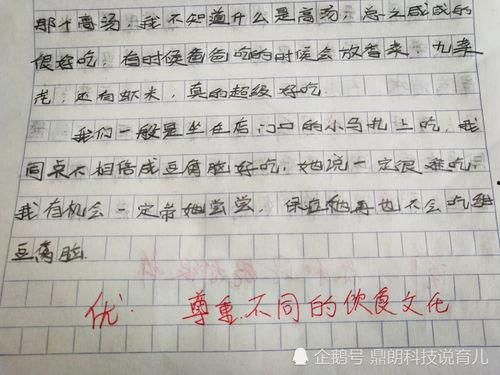 那个高汤，我不知道什么是高汤，总之咸咸的
很好吃，有时候爸爸吃的时候会放香菜，九菜
花，还有虾米，真的超级好吃.
我们一般是坐在店门口的小马扎上吃，我
同桌不相信咸豆腐脑好吃，她说一定很难吃，
我有机会一定带她尝尝，保证她再也不会吃甜
豆腐脑.
优. 尊重.不同的饮食文化
企鹅号 鼎朗科技说育儿